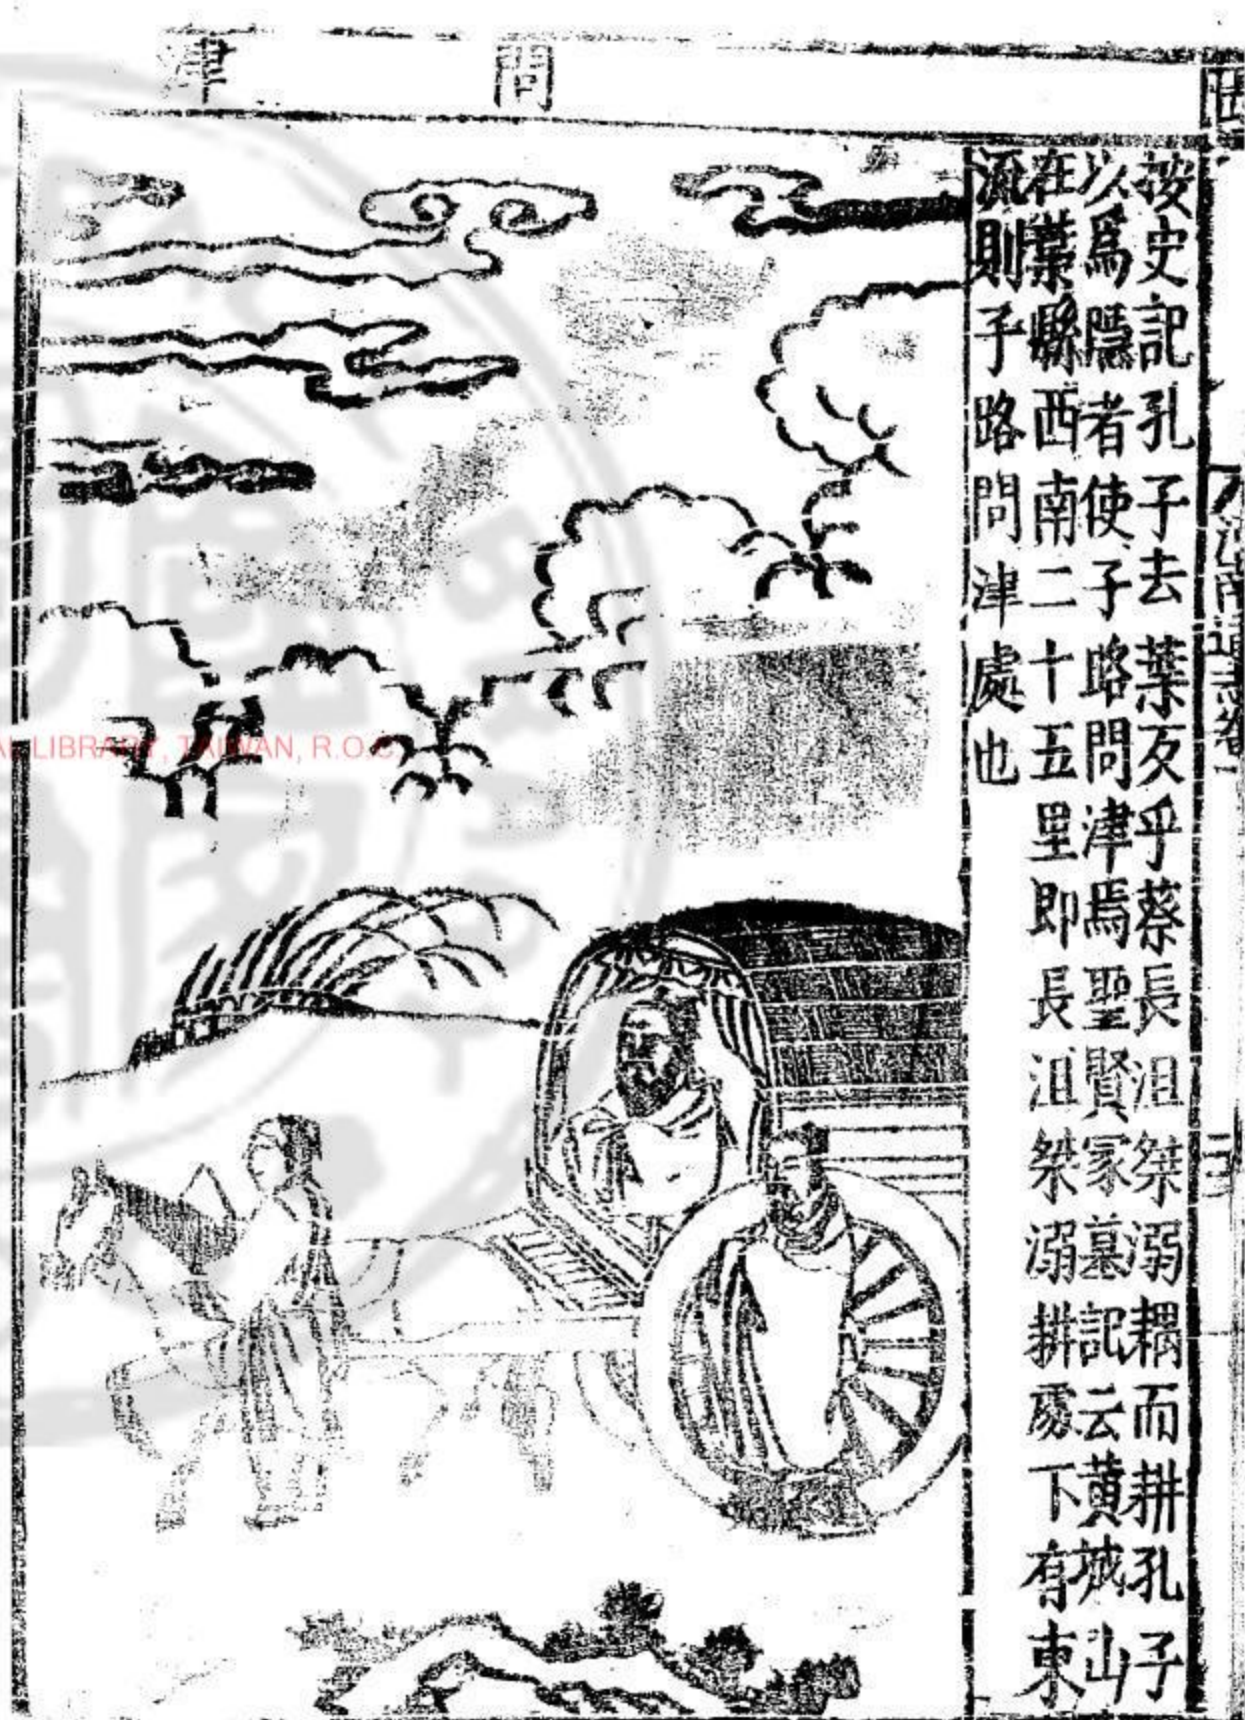 問津
按史記孔子去葉反乎蔡長沮桀溺耦而耕孔子
以爲隱者使子路問津焉聖賢冢墓記云黃城山
在葉縣西南二十五里即長沮桀溺耕處下有東
流則子路問津處也
LIBRARY, TAIWAN, R.O.C